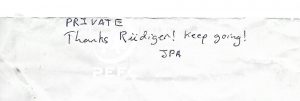 PRIVATE
Thanks Rüdiger! Keep going!
JPA